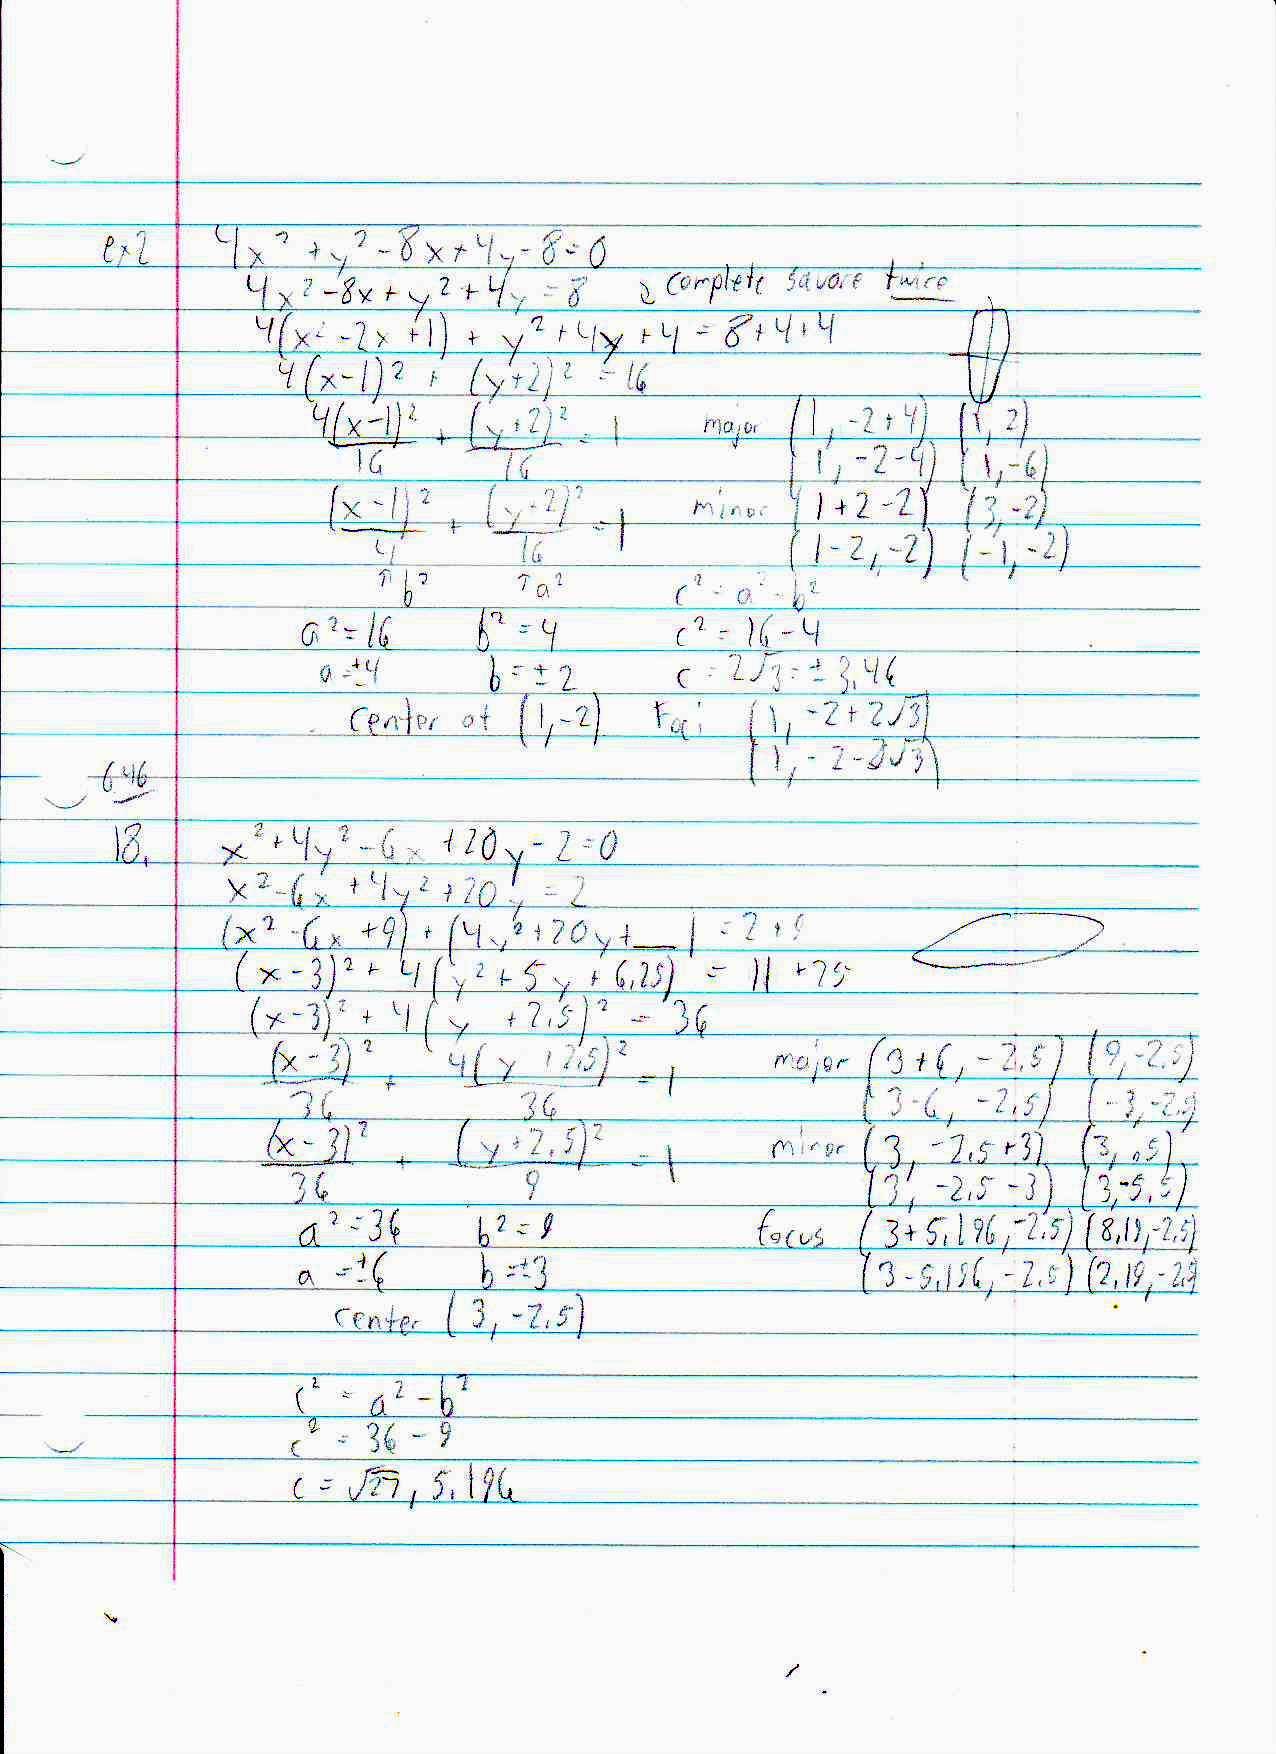 ex2 4x² + y² - 8x + 4y - 8 = 0
4x² - 8x + y² + 4y = 8 complete square twice
4(x² - 2x + 1) + y² + 4y + 4 = 8 + 4 + 4
4(x-1)² + (y+2)² = 16
4(x-1)²/16 + (y+2)²/16 = 1 major (1, -2+4) (1, 2)
(1, -2-4) (1, -6)
(x-1)²/4 + (y-2)²/16 = 1 minor (1+2 -2) (3, -2)
(1-2, -2) (-1, -2)
↑ b² ↑ a² c² = a² - b²
a² = 16 b² = 4 c² = 16 - 4
a = ±4 b = ±2 c = 2√3 = ±3.46
center at (1, -2) Foci (1, -2+2√3)
(1, -2-2√3)
646
18. x² + 4y² - 6x + 20y - 2 = 0
x² - 6x + 4y² + 20y = 2
(x² - 6x + 9) + (4y² + 20y + __ ) = 2 + 9
(x-3)² + 4(y² + 5y + 6.25) = 11 + 25
(x-3)² + 4(y + 2.5)² = 36
(x-3)²/36 + 4(y + 2.5)²/36 = 1 major (3+6, -2.5) (9, -2.5)
(3-6, -2.5) (-3, -2.5)
(x-3)²/36 + (y+2.5)²/9 = 1 minor (3, -2.5+3) (3, .5)
(3, -2.5-3) (3, -5.5)
a² = 36 b² = 9 focus (3+5.196, -2.5) (8.19, -2.5)
a = ±6 b = ±3 (3-5.196, -2.5) (2.19, -2.5)
center (3, -2.5)
c² = a² - b²
c² = 36 - 9
c = √27, 5.196